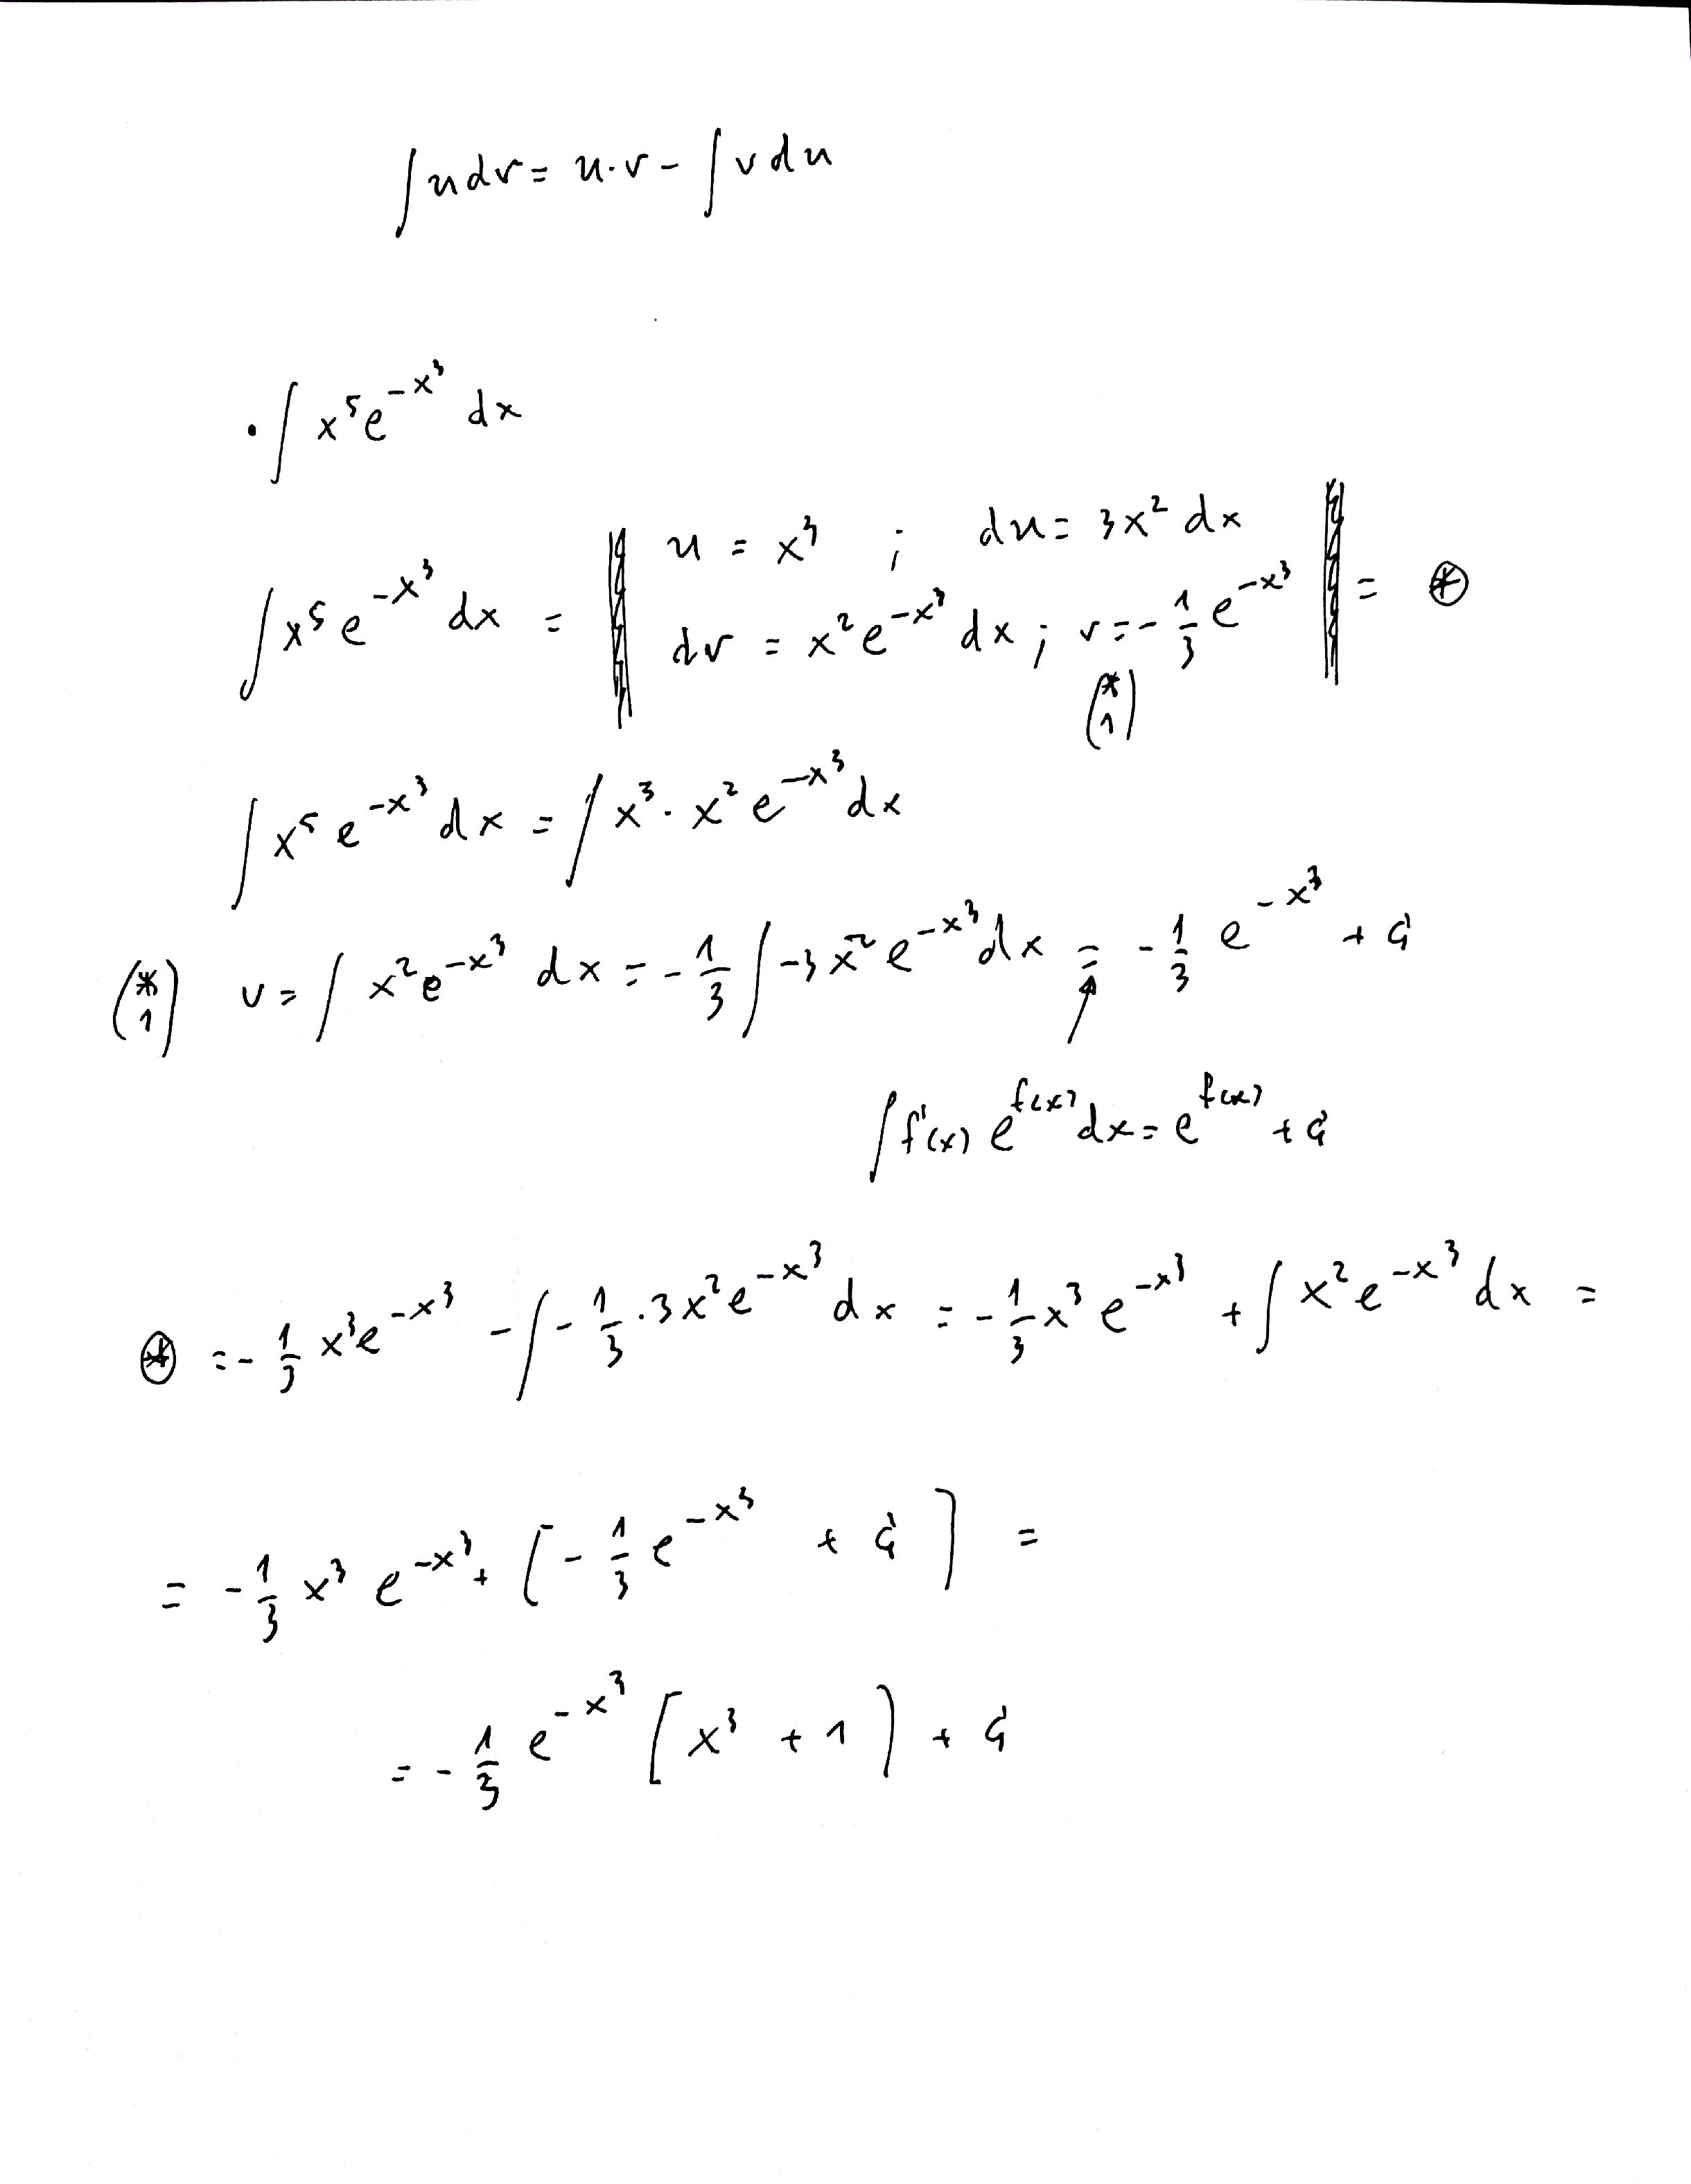 ∫udv = u·v - ∫vdu
· ∫x⁵e^(-x³) dx
∫x⁵e^(-x³) dx = ‖ u = x³ ; du = 3x² dx
dv = x²e^(-x³) dx ; v = -1/3 e^(-x³) ‖ = ⊛
(* 1)
∫x⁵e^(-x³) dx = ∫x³ · x²e^(-x³) dx
(* 1) v = ∫x²e^(-x³) dx = -1/3 ∫-3x²e^(-x³) dx = -1/3 e^(-x³) + C
∫f'(x) e^(f(x)) dx = e^(f(x)) + C
⊛ = -1/3 x³e^(-x³) - ∫-1/3 · 3x²e^(-x³) dx = -1/3 x³e^(-x³) + ∫x²e^(-x³) dx =
= -1/3 x³ e^(-x³) + [-1/3 e^(-x³) + C] =
= -1/3 e^(-x³) [x³ + 1] + C